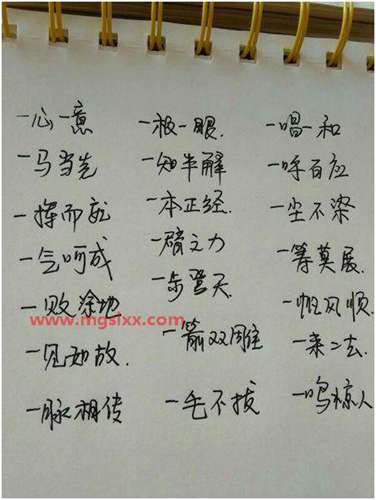 一心一意 一板一眼. 一唱一和
一马当先 一知半解 一呼百应
一挥而就 一本正经. 一尘不染
一气呵成 一臂之力 一筹莫展.
一败涂地 一步登天 一帆风顺.
www.mgslxx.com
一见如故. 一箭双雕 一来二去.
一脉相传 一毛不拔 一鸣惊人